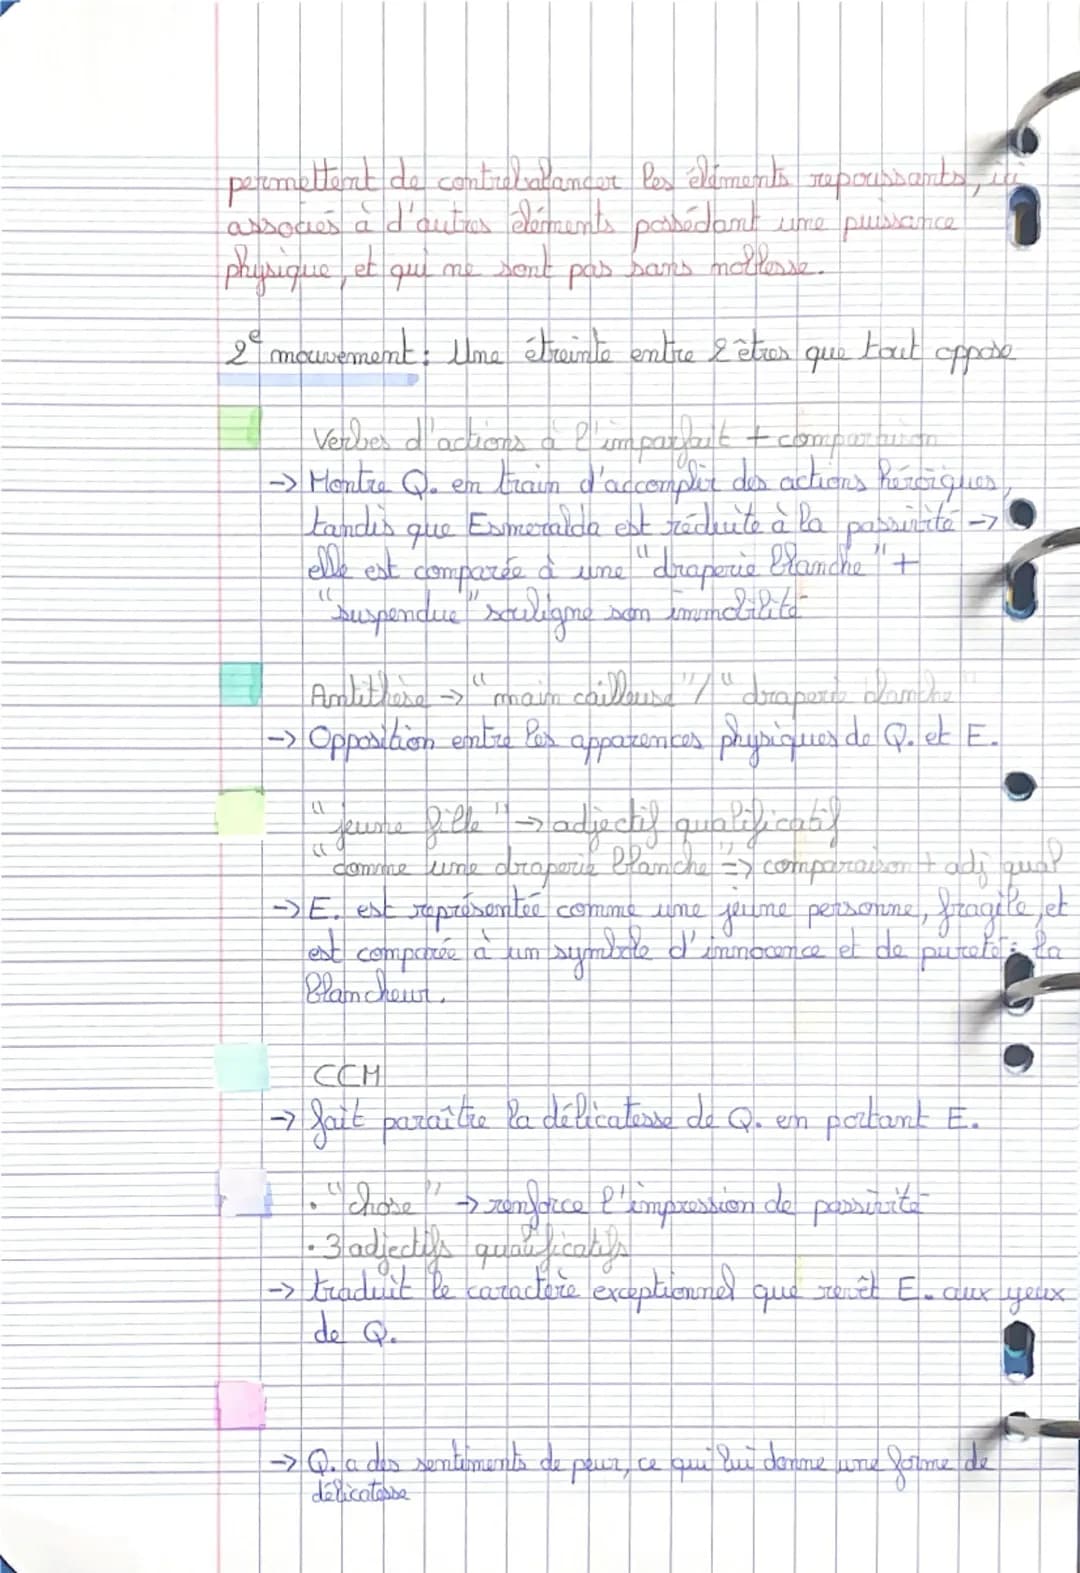 permettent de contrebalancer les éléments repoussants, ici
associés à d'autres éléments possédant une puissance
physique, et qui ne sont pas sans mollesse.
2e mouvement : Une étreinte entre 2 êtres que tout oppose
Verbes d'actions à l'imparfait + comparaison
-> Montre Q. en train d'accomplir des actions héroïques,
tandis que Esmeralda est réduite à la passivité ->
elle est comparée à une "draperie blanche" +
"suspendue" souligne son immobilité
Antithèse -> "main cailleuse" / "draperie blanche"
-> Opposition entre les apparences physiques de Q. et E.
"jeune fille" -> adjectif qualificatif
"comme une draperie blanche" => comparaison + adj qual
-> E. est représentée comme une jeune personne, fragile, et
est comparée à un symbole d'innocence et de pureté : la
blancheur.
CCM
-> fait paraître la délicatesse de Q. en portant E.
. "chose" -> renforce l'impression de passivité
. 3 adjectifs qualificatifs
-> traduit le caractère exceptionnel que revêt E. aux yeux
de Q.
-> Q. a des sentiments de peur, ce qui lui donne une forme de
délicatesse